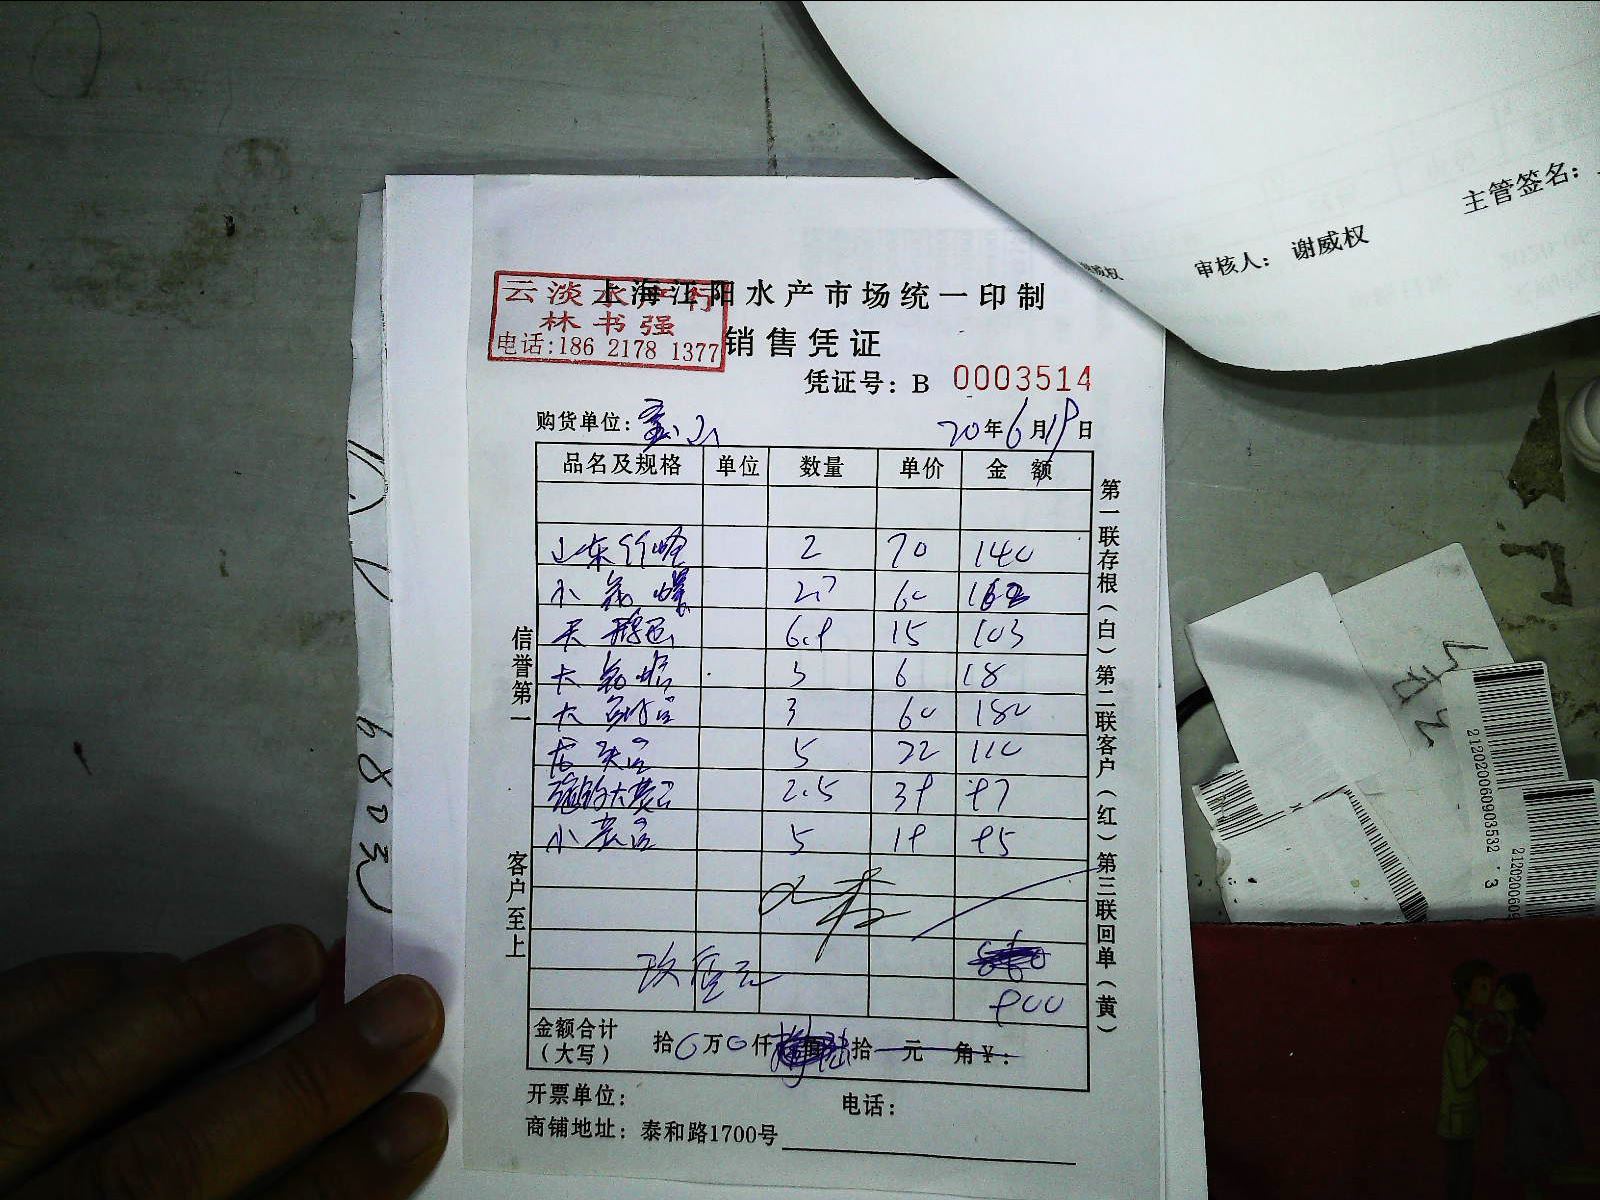 主管签名：
审核人： 谢威权
上海江阳水产市场统一印制
云淡水产行
林书强
电话:186 2178 1377
销售凭证
凭证号：B 0003514
购货单位：宝山 20年6月19日
品名及规格 单位 数量 单价 金 额
山东竹蛏 2 70 140
小花螺 2.7 60 162
天鹅蛋 6.9 15 103
3 6 18
大 3 60 180
龙头 5 22 110
2.5 39 97
小黄 5 19 95
玖佰元
900
金额合计（大写） 拾0万0仟 拾 元 角¥：
开票单位： 电话：
商铺地址：泰和路1700号
信誉第一
客户至上
第一联存根（白）第二联客户（红）第三联回单（黄）
6803
212020060903532 3